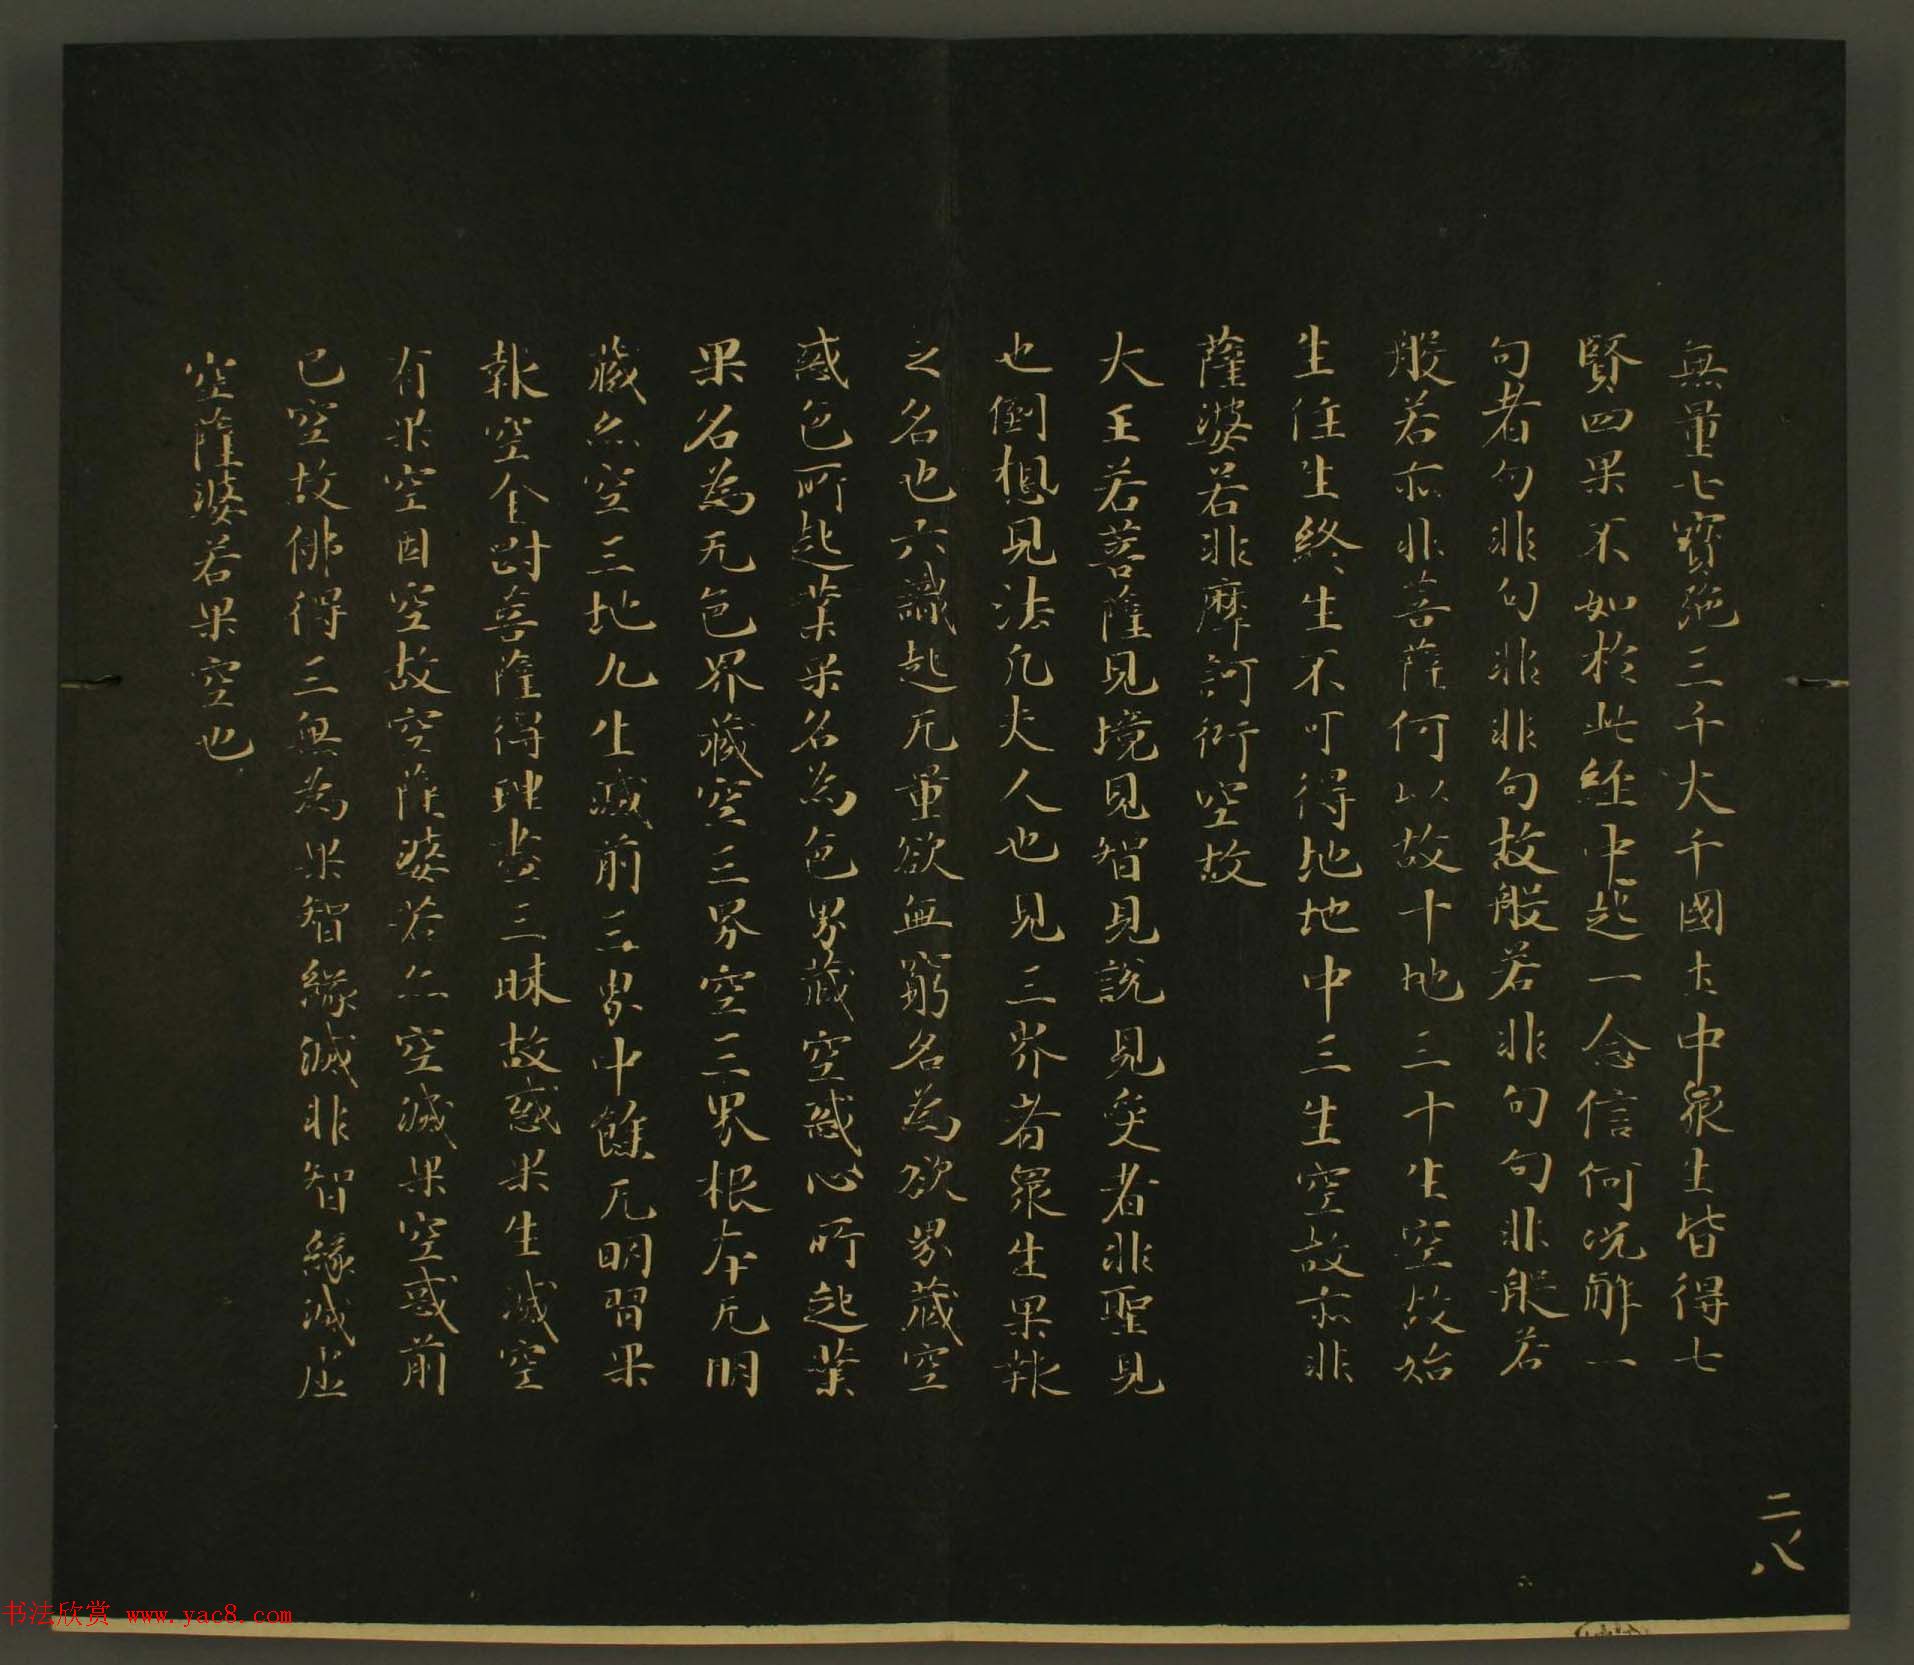 無量七寶施三千大千國土中衆生皆得七
賢四果不如於此經中起一念信何況解一
句者句非句非非句故般若非句句非般若
般若亦非菩薩何以故十地三十生空故始
生住生終生不可得地地中三生空故亦非
薩婆若非摩訶衍空故
大王若菩薩見境見智見說見受者非聖見
也倒想見法凡夫人也見三界者衆生果報
之名也六識起无量欲無窮名為欲界藏空
惑色所起業果名為色界藏空惑心所起業
果名為无色界藏空三界空三界根本无明
藏亦空三地九生滅前三界中餘无明習果
報空金剛菩薩得理盡三昧故惑果生滅空
有果空因空故空薩婆若亦空滅果空惑前
已空故佛得三無為果智緣滅非智緣滅虛
空薩婆若果空也
二八
书法欣赏 www.yac8.com